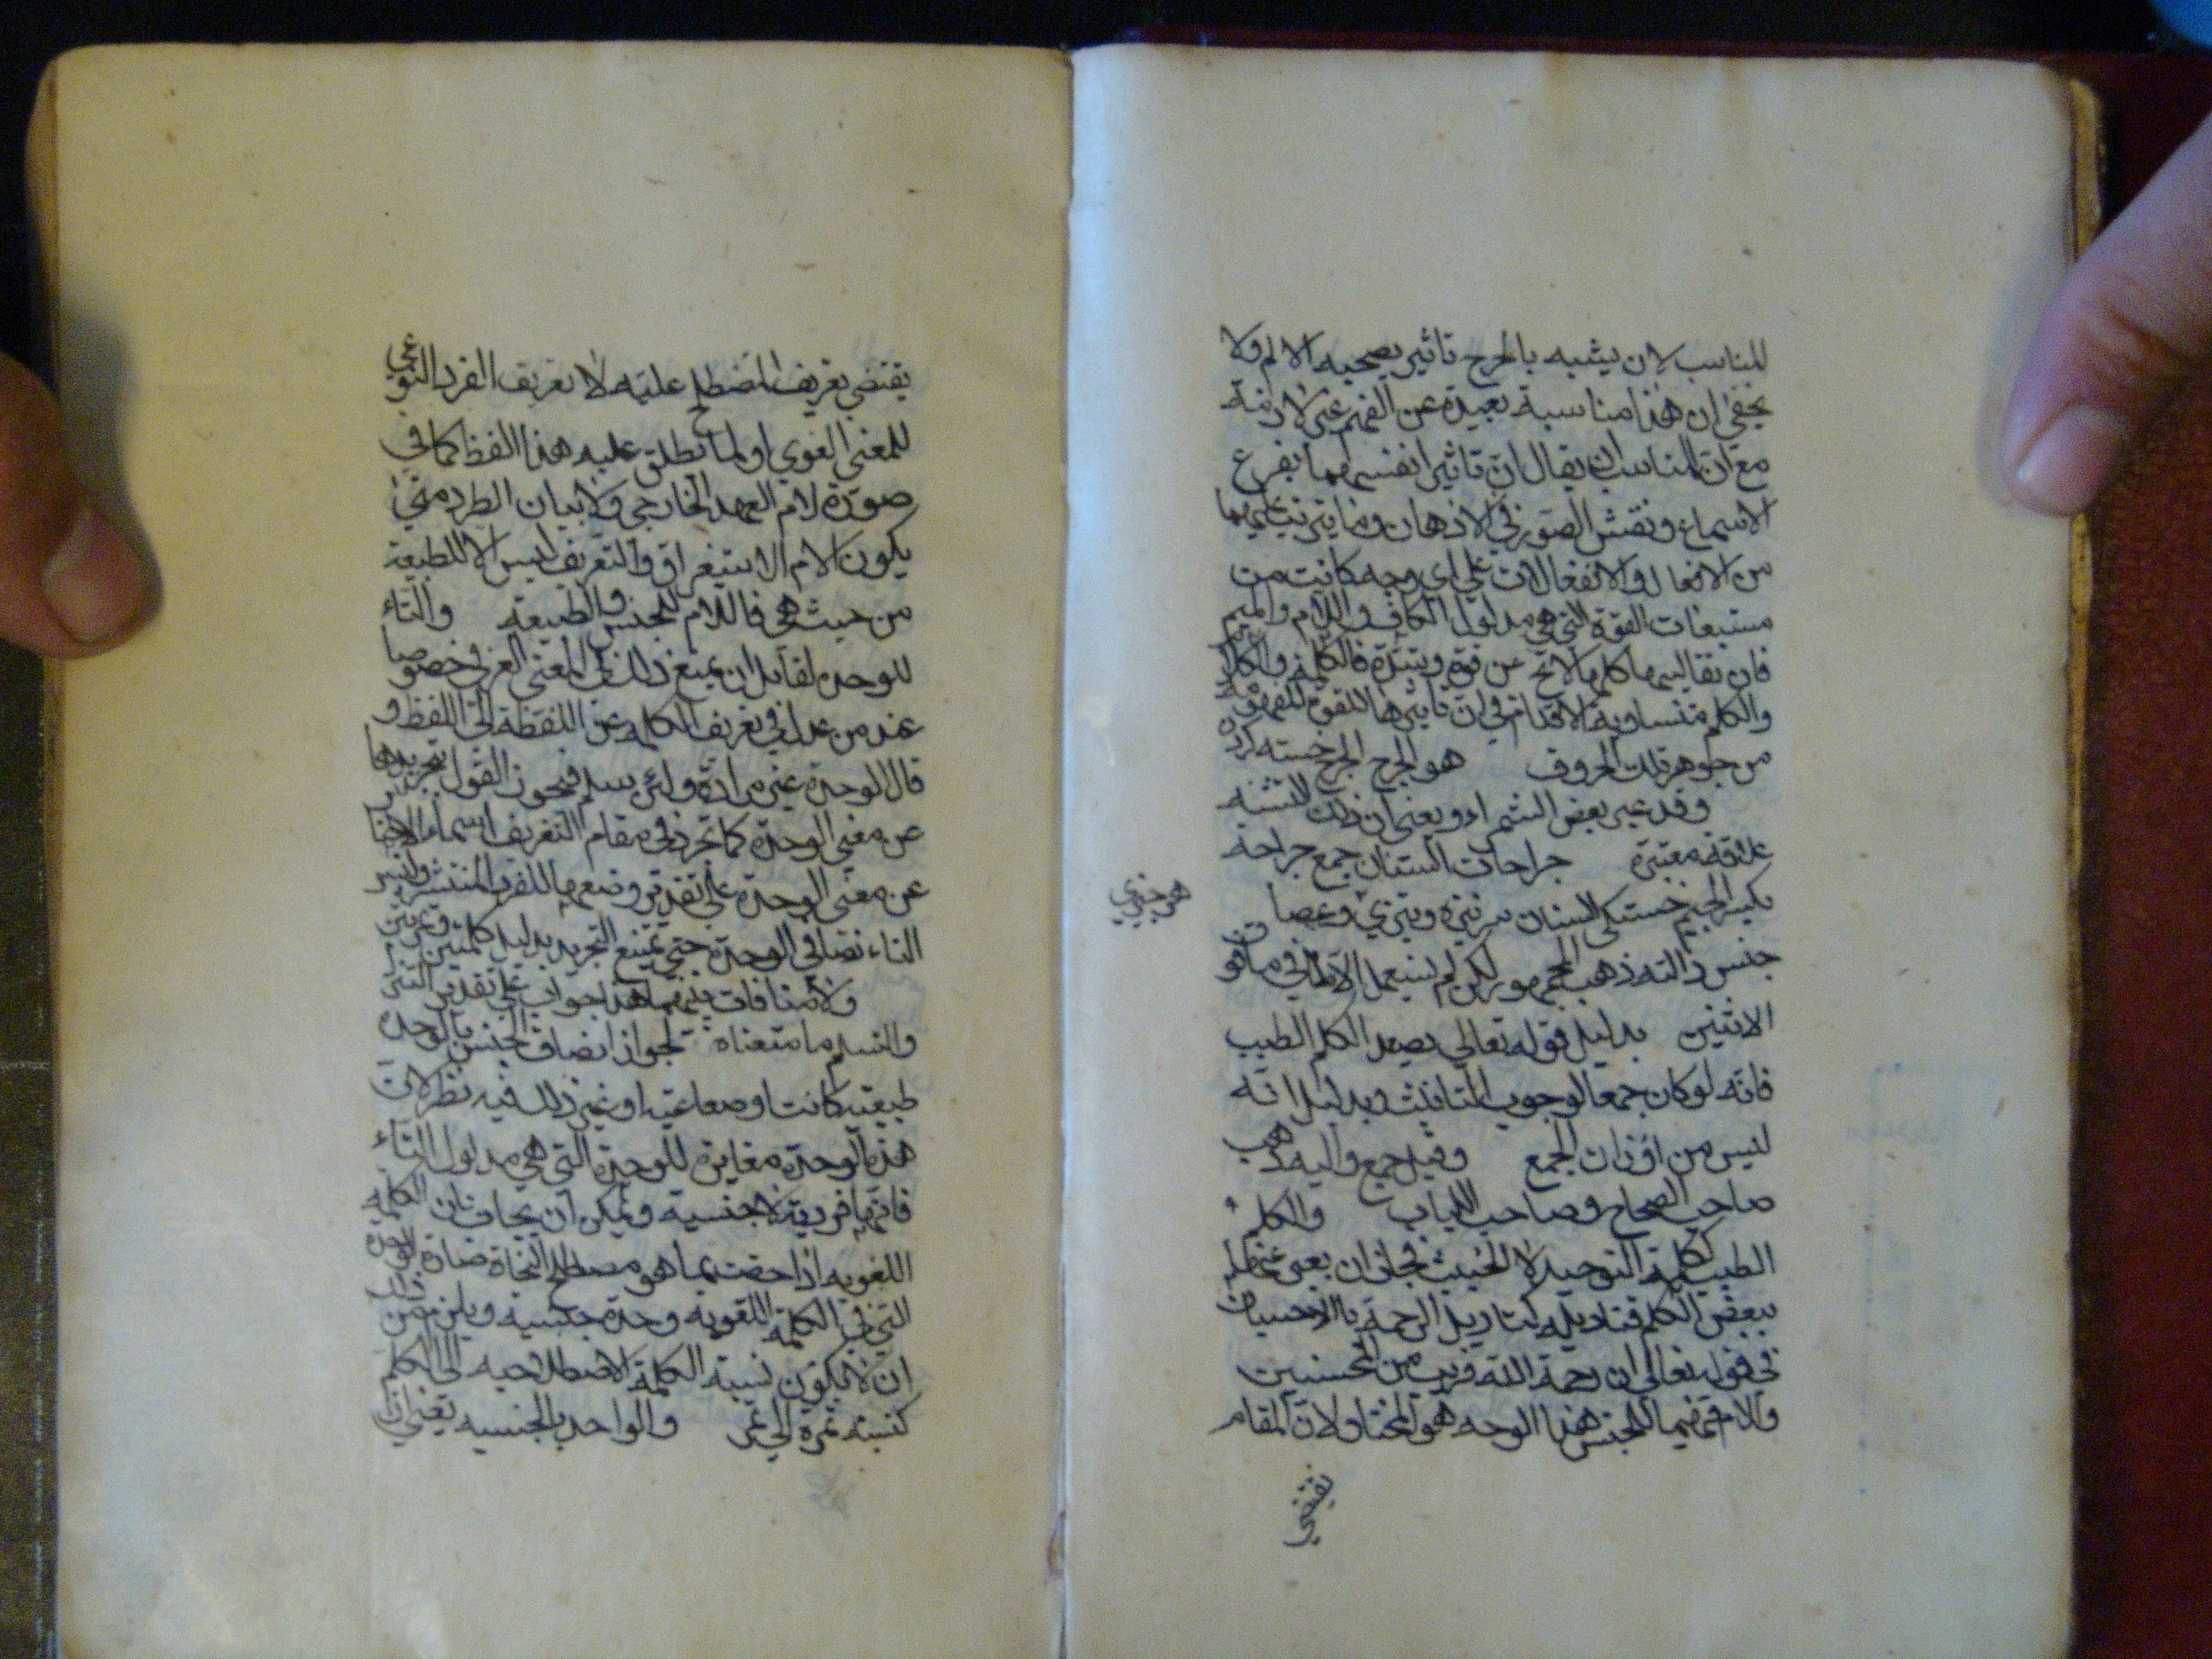 للمناسب لان يشبه بالجرح تاثير يصحبه الالم ولا
يخفى ان هذا مناسبة بعيدة عن الفهم غير لازمة
مع ان المناسب ان يقال ان تاثير انفسهما بقرع
الاسماع ونقش الصور في الاذهان وما يترتب عليهما
من الافعال والانفعالات على اي وجه كانت من
مستتبعات القوة التي هي مدلول الكاف واللام والميم
فان تقاليبها كلها لا تخ عن قوة وشدة فالكلمة والكلام
والكلم متساوية الاقدام في ان تاثيرها للقوة المفهومة
من جوهر تلك الحروف هو الجرح الجرح خسته كردن
وقد عبر بعض الشعراء ويعني ان ذلك التشبيه
علاقة معتبرة جراحات السنان جمع جراحة
بكسر الجيم خستكى السنان سر نيزه وتيزي وعصا
جنس والته ذهب الجمهور لكن لم يستعمل الا في ما فوق
الاثنين بدليل قوله تعالى يصعد الكلم الطيب
فانه لو كان جمعا لوجوب التانيث وبدليل انه
ليس من اوزان الجمع وقيل جمع واليه ذهب
صاحب الصحاح وصاحب اللباب والكلم
الطيب كلمة التوحيد لا الخبيث فجاز ان يعبر عنها
ببعض الكلم فتاويله كتاويل الرحمة بالاحسان
في قوله تعالى ان رحمة الله قريب من المحسنين
واللام فيها للجنس هذا الوجه هو المختار لان المقام
يقتضي
هو جنيدي
يقتضي تعريف المصطلح عليه لا تعريف الفرد النوعي
للمعنى اللغوي او لما تطلق عليه هذا اللفظ كما في
صورة لام العهد الخارجي ولا بيان الطرد متى
يكون لام الاستغراق والتعريف ليس الا للطبيعة
من حيث هي فاللام للجنس والطبيعة والتاء
للوحدة لقائل ان يمنع ذلك في المعنى العرفي خصوصا
عند من عدل في تعريف الكلمة عن اللفظة الى اللفظ و
قال الوحدة غير مرادة ولئن سلم فيجوز القول بتجريدها
عن معنى الوحدة كما تجرد في مقام التعريف اسماء الاجناس
عن معنى الوحدة على تقدير وضعها للفرد المنتشر وليس
التاء نصا في الوحدة حتى يمتنع التجريد بدليل كلمتين وتمرتين
ولا منافات بينهما هذا جواب على تقدير التنزل
والتسليم ما متعناه لجواز اتصاف الجنس بالوحدة
طبيعية كانت او صناعية او غير ذلك فيه نظر لان
هذه الوحدة مغايرة للوحدة التي هي مدلول التاء
فانها فردية لا جنسية ويمكن ان يجاب بان الكلمة
اللغوية اذا خصت بما هو مصطلح النحاة صارة الوحدة
التي في الكلمة اللغوية وحدة جنسية ويلزم من ذلك
ان لا يكون نسبة الكلمة الاصطلاحية الى الكلم
كنسبة تمرة الى تمر والواحد بالجنسية يعني اذا